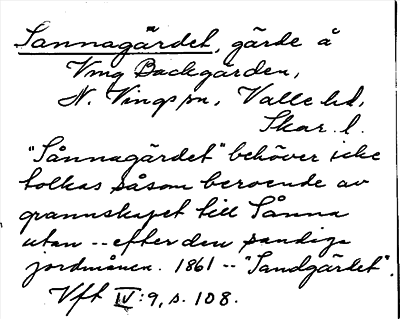 Sannagärdet, gärde å
Vmg Backgården,
N. Vings sn, Valle hd,
Skar. l.
"Sånnagärdet" behöver icke
tolkas såsom beroende av
grannskapet till Sånna
utan -- efter den sandiga
jordmånen. 1861 -- "Sandgärdet".
Vft IV:9, s. 108.